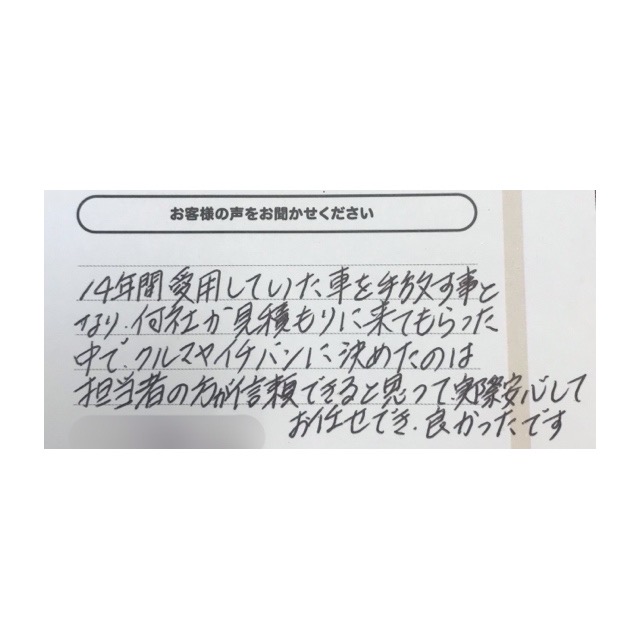 お客様の声をお聞かせください
14年間愛用していた車を手放す事と
なり、何社か見積もりに来てもらった
中で、クルマヤイチバンに決めたのは
担当者の方が信頼できると思って、実際安心して
お任せでき、良かったです